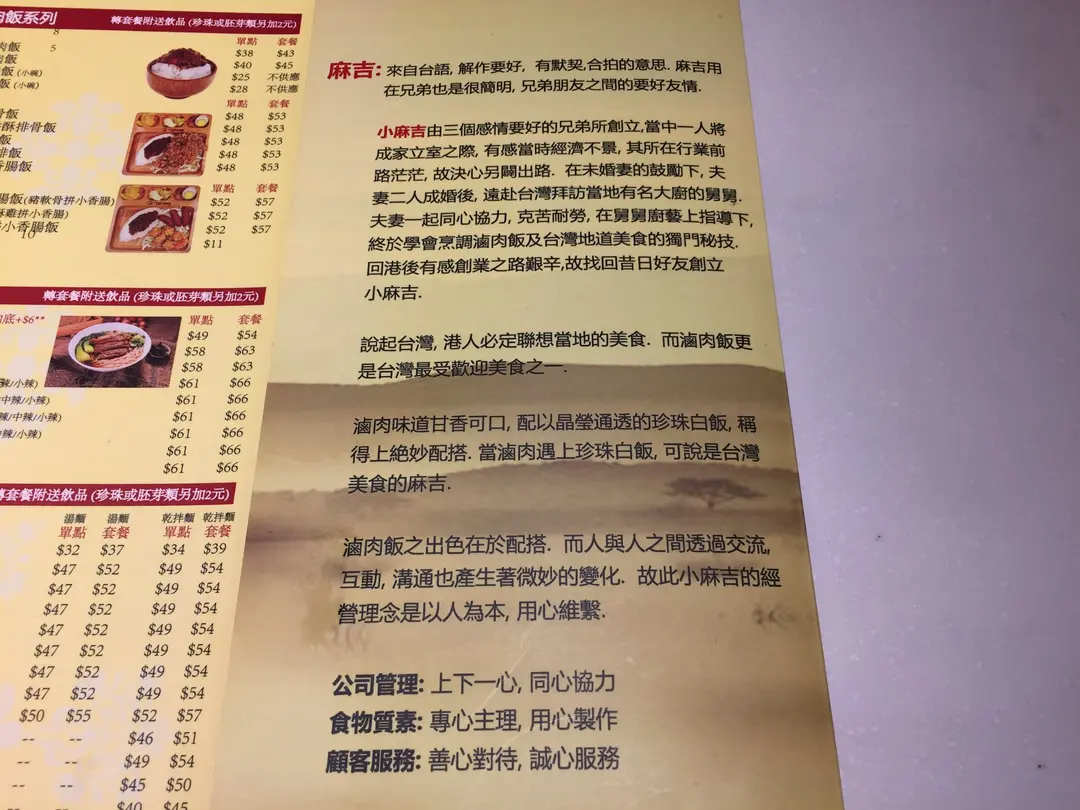 肉飯系列
轉套餐附送飲品 (珍珠或胚芽類另加2元)
單點 套餐
肉飯 $38 $43
飯 $40 $45
飯 (小碗) $25 不供應
飯 (小碗) $28 不供應
單點 套餐
骨飯 $48 $53
酥排骨飯 $48 $53
飯 $48 $53
排飯 $48 $53
香腸飯 $48 $53
單點 套餐
腸飯(豬軟骨拼小香腸) $52 $57
酥雞拼小香腸) $52 $57
小香腸飯 $52 $57
$11
轉套餐附送飲品 (珍珠或胚芽類另加2元)
底+$6** 單點 套餐
$49 $54
$58 $63
$58 $63
辣/小辣) $61 $66
中辣/小辣) $61 $66
辣/中辣/小辣) $61 $66
中辣/小辣) $61 $66
$61 $66
$61 $66
轉套餐附送飲品 (珍珠或胚芽類另加2元)
湯麵 湯麵 乾拌麵 乾拌麵
單點 套餐 單點 套餐
$32 $37 $34 $39
$47 $52 $49 $54
$47 $52 $49 $54
$47 $52 $49 $54
$47 $52 $49 $54
$47 $52 $49 $54
$47 $52 $49 $54
$47 $52 $49 $54
$50 $55 $52 $57
-- -- $46 $51
-- -- $49 $54
-- -- $45 $50
-- -- $40 $45
麻吉: 來自台語, 解作要好, 有默契,合拍的意思. 麻吉用
在兄弟也是很簡明, 兄弟朋友之間的要好友情.
小麻吉由三個感情要好的兄弟所創立,當中一人將
成家立室之際, 有感當時經濟不景, 其所在行業前
路茫茫, 故決心另闢出路. 在未婚妻的鼓勵下, 夫
妻二人成婚後, 遠赴台灣拜訪當地有名大廚的舅舅.
夫妻一起同心協力, 克苦耐勞, 在舅舅廚藝上指導下,
終於學會烹調滷肉飯及台灣地道美食的獨門秘技.
回港後有感創業之路艱辛,故找回昔日好友創立
小麻吉.
說起台灣, 港人必定聯想當地的美食. 而滷肉飯更
是台灣最受歡迎美食之一.
滷肉味道甘香可口, 配以晶瑩通透的珍珠白飯, 稱
得上絕妙配搭. 當滷肉遇上珍珠白飯, 可說是台灣
美食的麻吉.
滷肉飯之出色在於配搭. 而人與人之間透過交流,
互動, 溝通也產生著微妙的變化. 故此小麻吉的經
營理念是以人為本, 用心維繫.
公司管理: 上下一心, 同心協力
食物質素: 專心主理, 用心製作
顧客服務: 善心對待, 誠心服務